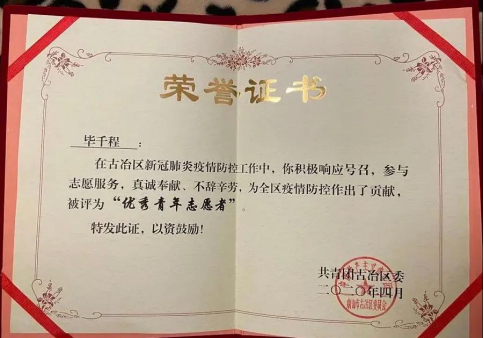 荣誉证书
毕千程：
在古冶区新冠肺炎疫情防控工作中，你积极响应号召，参与
志愿服务，真诚奉献、不辞辛劳，为全区疫情防控作出了贡献，
被评为“优秀青年志愿者”
特发此证，以资鼓励！
共青团古冶区委
二〇二〇年四月